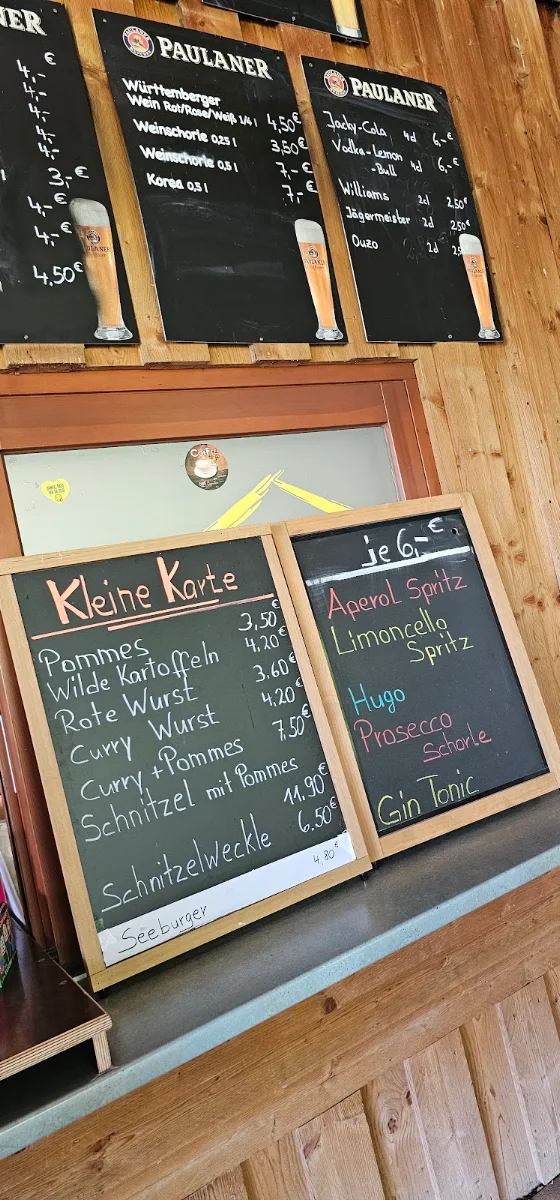 NER
€
4,-
4,-
4,-
4,-
4,-
3,-€
4,-€
4,-€
4,50€
PAULANER
Württemberger
Wein Rot/Rose/Weiß 1/4 l 4,50€
Weinschorle 0,25 l 3,50€
Weinschorle 0,5 l 7,-€
Korea 0,5 l 7,-€
PAULANER
Jacky-Cola 4cl 6,-€
Vodka-Lemon
-Bull 4cl 6,-€
Williams 2cl 2,50€
Jägermeister 2cl 2,50€
Ouzo 2cl 2,5
Kleine Karte
Pommes 3,50€
Wilde Kartoffeln 4.20€
Rote Wurst 3.60€
Curry Wurst 4.20€
Curry+Pommes 7,50€
Schnitzel mit Pommes
11.90€
Schnitzelweckle 6.50€
Seeburger 4,80€
je 6,-€
Aperol Spritz
Limoncello
Spritz
Hugo
Prosecco
Schorle
Gin Tonic